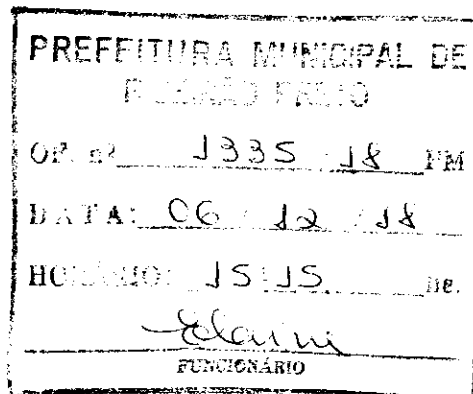 PREFEITURA MUNICIPAL DE
RIBEIRÃO PRETO
OF. nº 1335 / 18 FM
DATA: 06 / 12 / 18
HORÁRIO: 15:15 hs.
Elaine
FUNCIONÁRIO